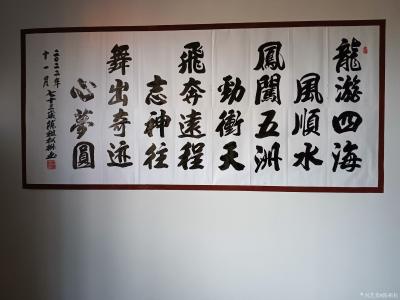 龍游四海
風順水
鳳闖五洲
勁衝天
飛奔遠程
志神往
舞出奇迹
心夢圓
二〇二二年
十一月七十三歲陳祖